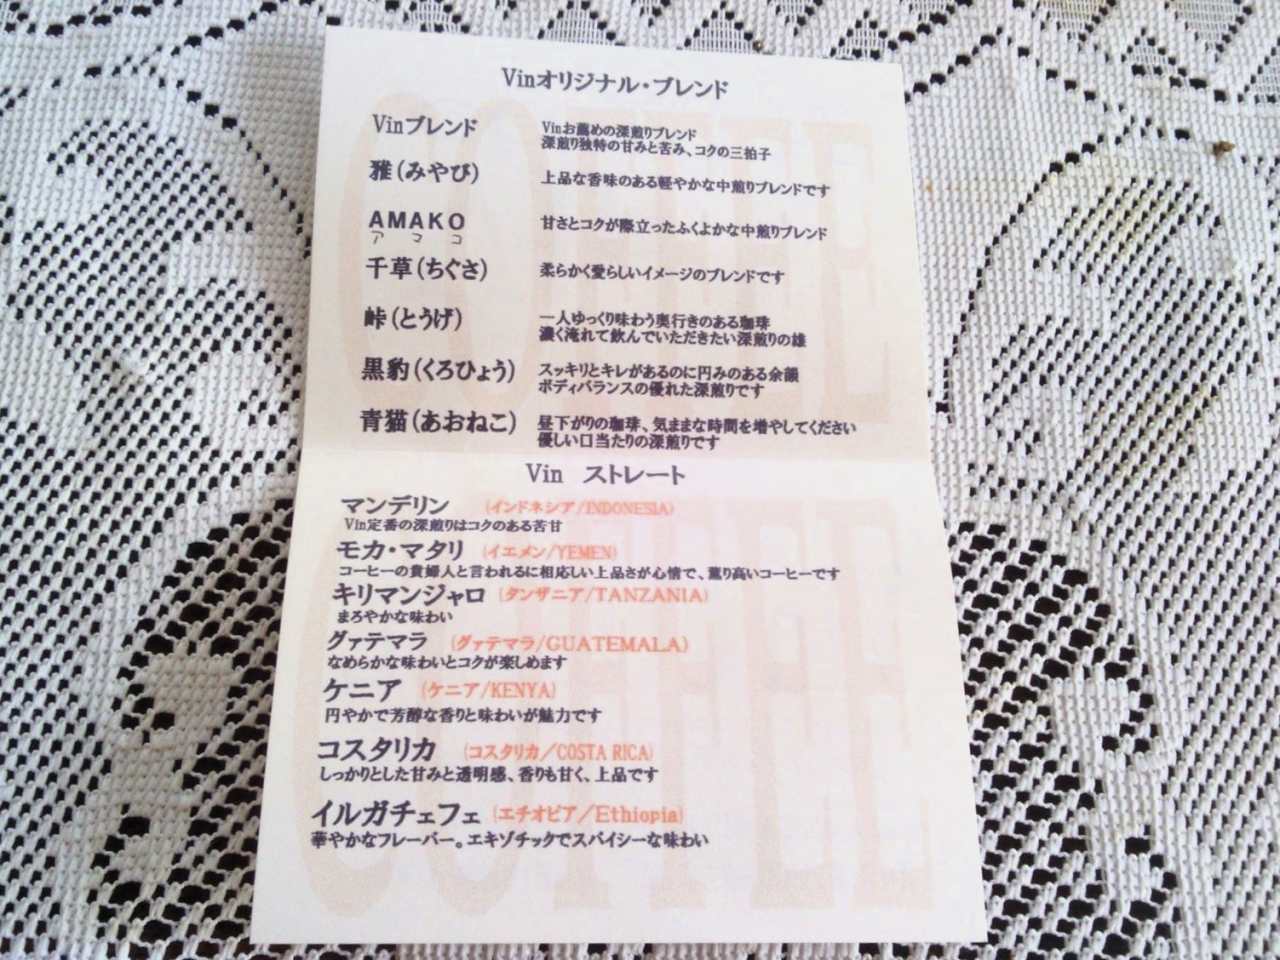 Vinオリジナル・ブレンド
Vinブレンド
Vinお薦めの深煎りブレンド
深煎り独特の甘みと苦み、コクの三拍子
雅(みやび)
上品な香味のある軽やかな中煎りブレンドです
AMAKO
アマコ
甘さとコクが際立ったふくよかな中煎りブレンド
千草(ちぐさ)
柔らかく愛らしいイメージのブレンドです
峠(とうげ)
一人ゆっくり味わう奥行きのある珈琲
濃く淹れて飲んでいただきたい深煎りの雄
黒豹(くろひょう)
スッキリとキレがあるのに円みのある余韻
ボディバランスの優れた深煎りです
青猫(あおねこ)
昼下がりの珈琲、気ままな時間を増やしてください
優しい口当たりの深煎りです
Vin ストレート
マンデリン (インドネシア/INDONESIA)
Vin定番の深煎りはコクのある苦甘
モカ・マタリ (イエメン/YEMEN)
コーヒーの貴婦人と言われるに相応しい上品さが心情で、薫り高いコーヒーです
キリマンジャロ (タンザニア/TANZANIA)
まろやかな味わい
グァテマラ (グァテマラ/GUATEMALA)
なめらかな味わいとコクが楽しめます
ケニア (ケニア/KENYA)
円やかで芳醇な香りと味わいが魅力です
コスタリカ (コスタリカ/COSTA RICA)
しっかりとした甘みと透明感、香りも甘く、上品です
イルガチェフェ (エチオピア/Ethiopia)
華やかなフレーバー。エキゾチックでスパイシーな味わい
COFFEE
COFFEE